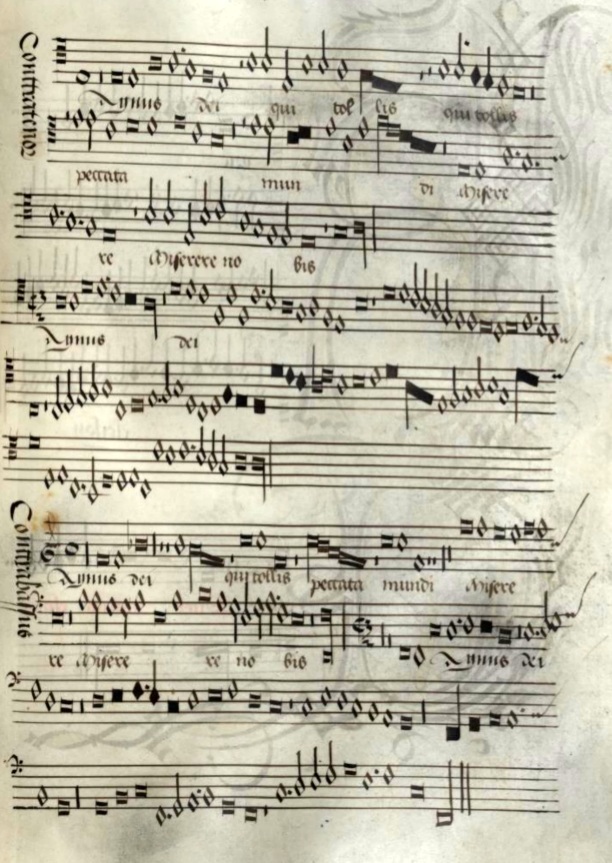 Contratenor
Agnus dei qui tol lis qui tollis
peccata mun di Misere
re Miserere no bis
Agnus dei
Contrabassus
Agnus dei qui tollis peccata mundi Misere
re Misere re no bis Agnus dei